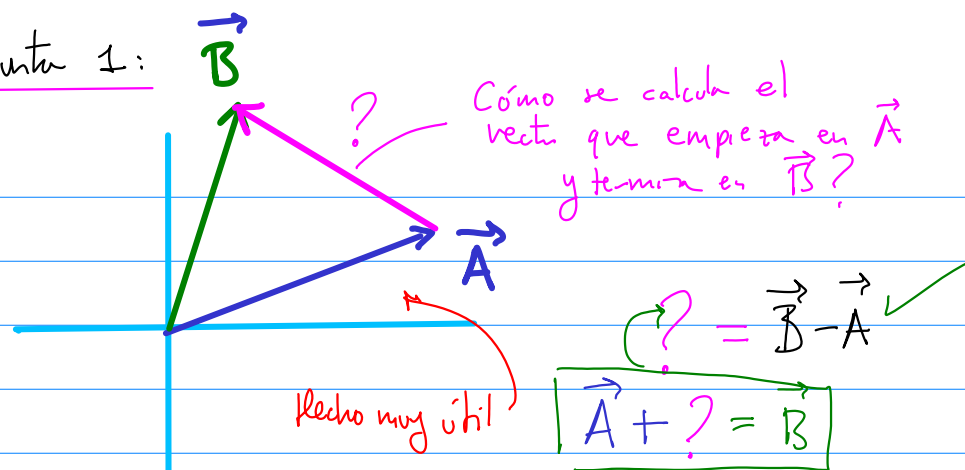 unta 1:
B⃗
?
Cómo se calcula el
vector que empieza en A⃗
y termina en B⃗?
A⃗
? = B⃗ - A⃗
Hecho muy útil
A⃗ + ? = B⃗